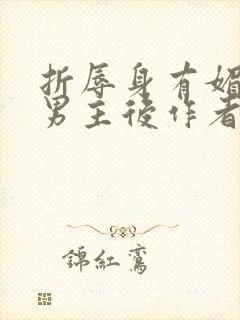 折辱身有媚
男主後作者
錦紅鸞